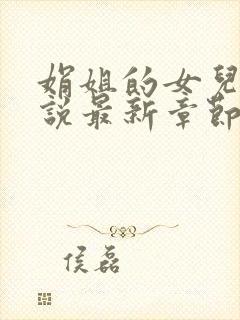 娟姐的女兒
說最新章節
侯磊